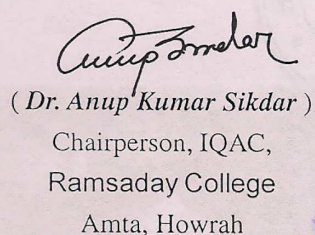 Anup Sikdar
( Dr. Anup Kumar Sikdar )
Chairperson, IQAC,
Ramsaday College
Amta, Howrah